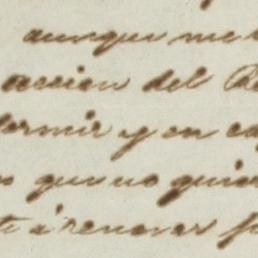 aunque me
accion del
dormir y en
que no quier
i renovar